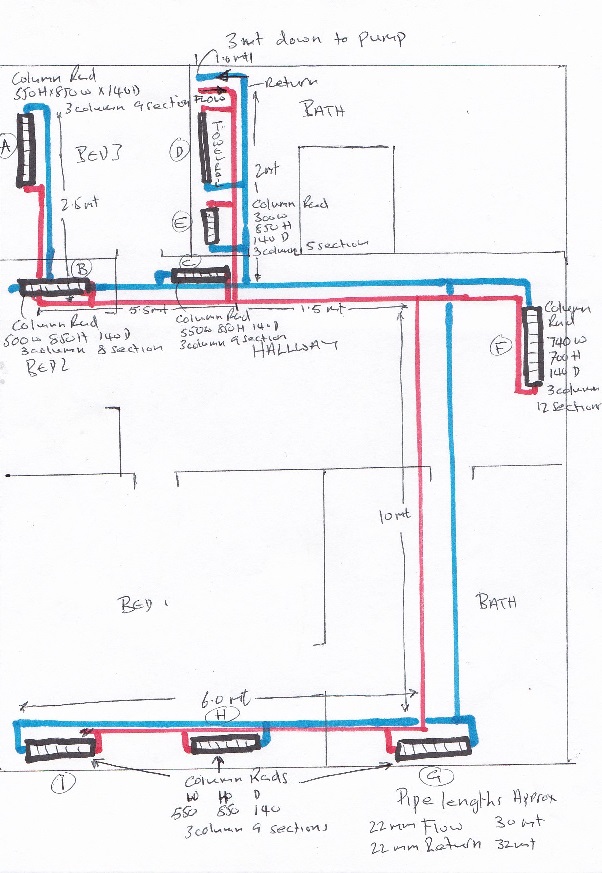 3mt down to pump
1.0mt
Return
Column Rad
550H x 850W x 140D
3 column 9 section
FLOW
BATH
A
BED 3
D
TOWEL RAIL
2mt
2.5mt
E
Column Rad
300W
850H
140D
3 column 5 section
B
C
5.5mt
1.5mt
Column Rad
500W 850H 140D
3 column 8 section
BED 2
Column Rad
550W 850H 140D
3 column 9 section
HALLWAY
F
Column
Rad
740W
700H
140D
3 column
12 section
10mt
BED 1
BATH
6.0mt
H
I
Column Rads
W H D
550 850 140
3 column 9 sections
G
Pipe lengths Approx
22mm Flow 30mt
22mm Return 32mt